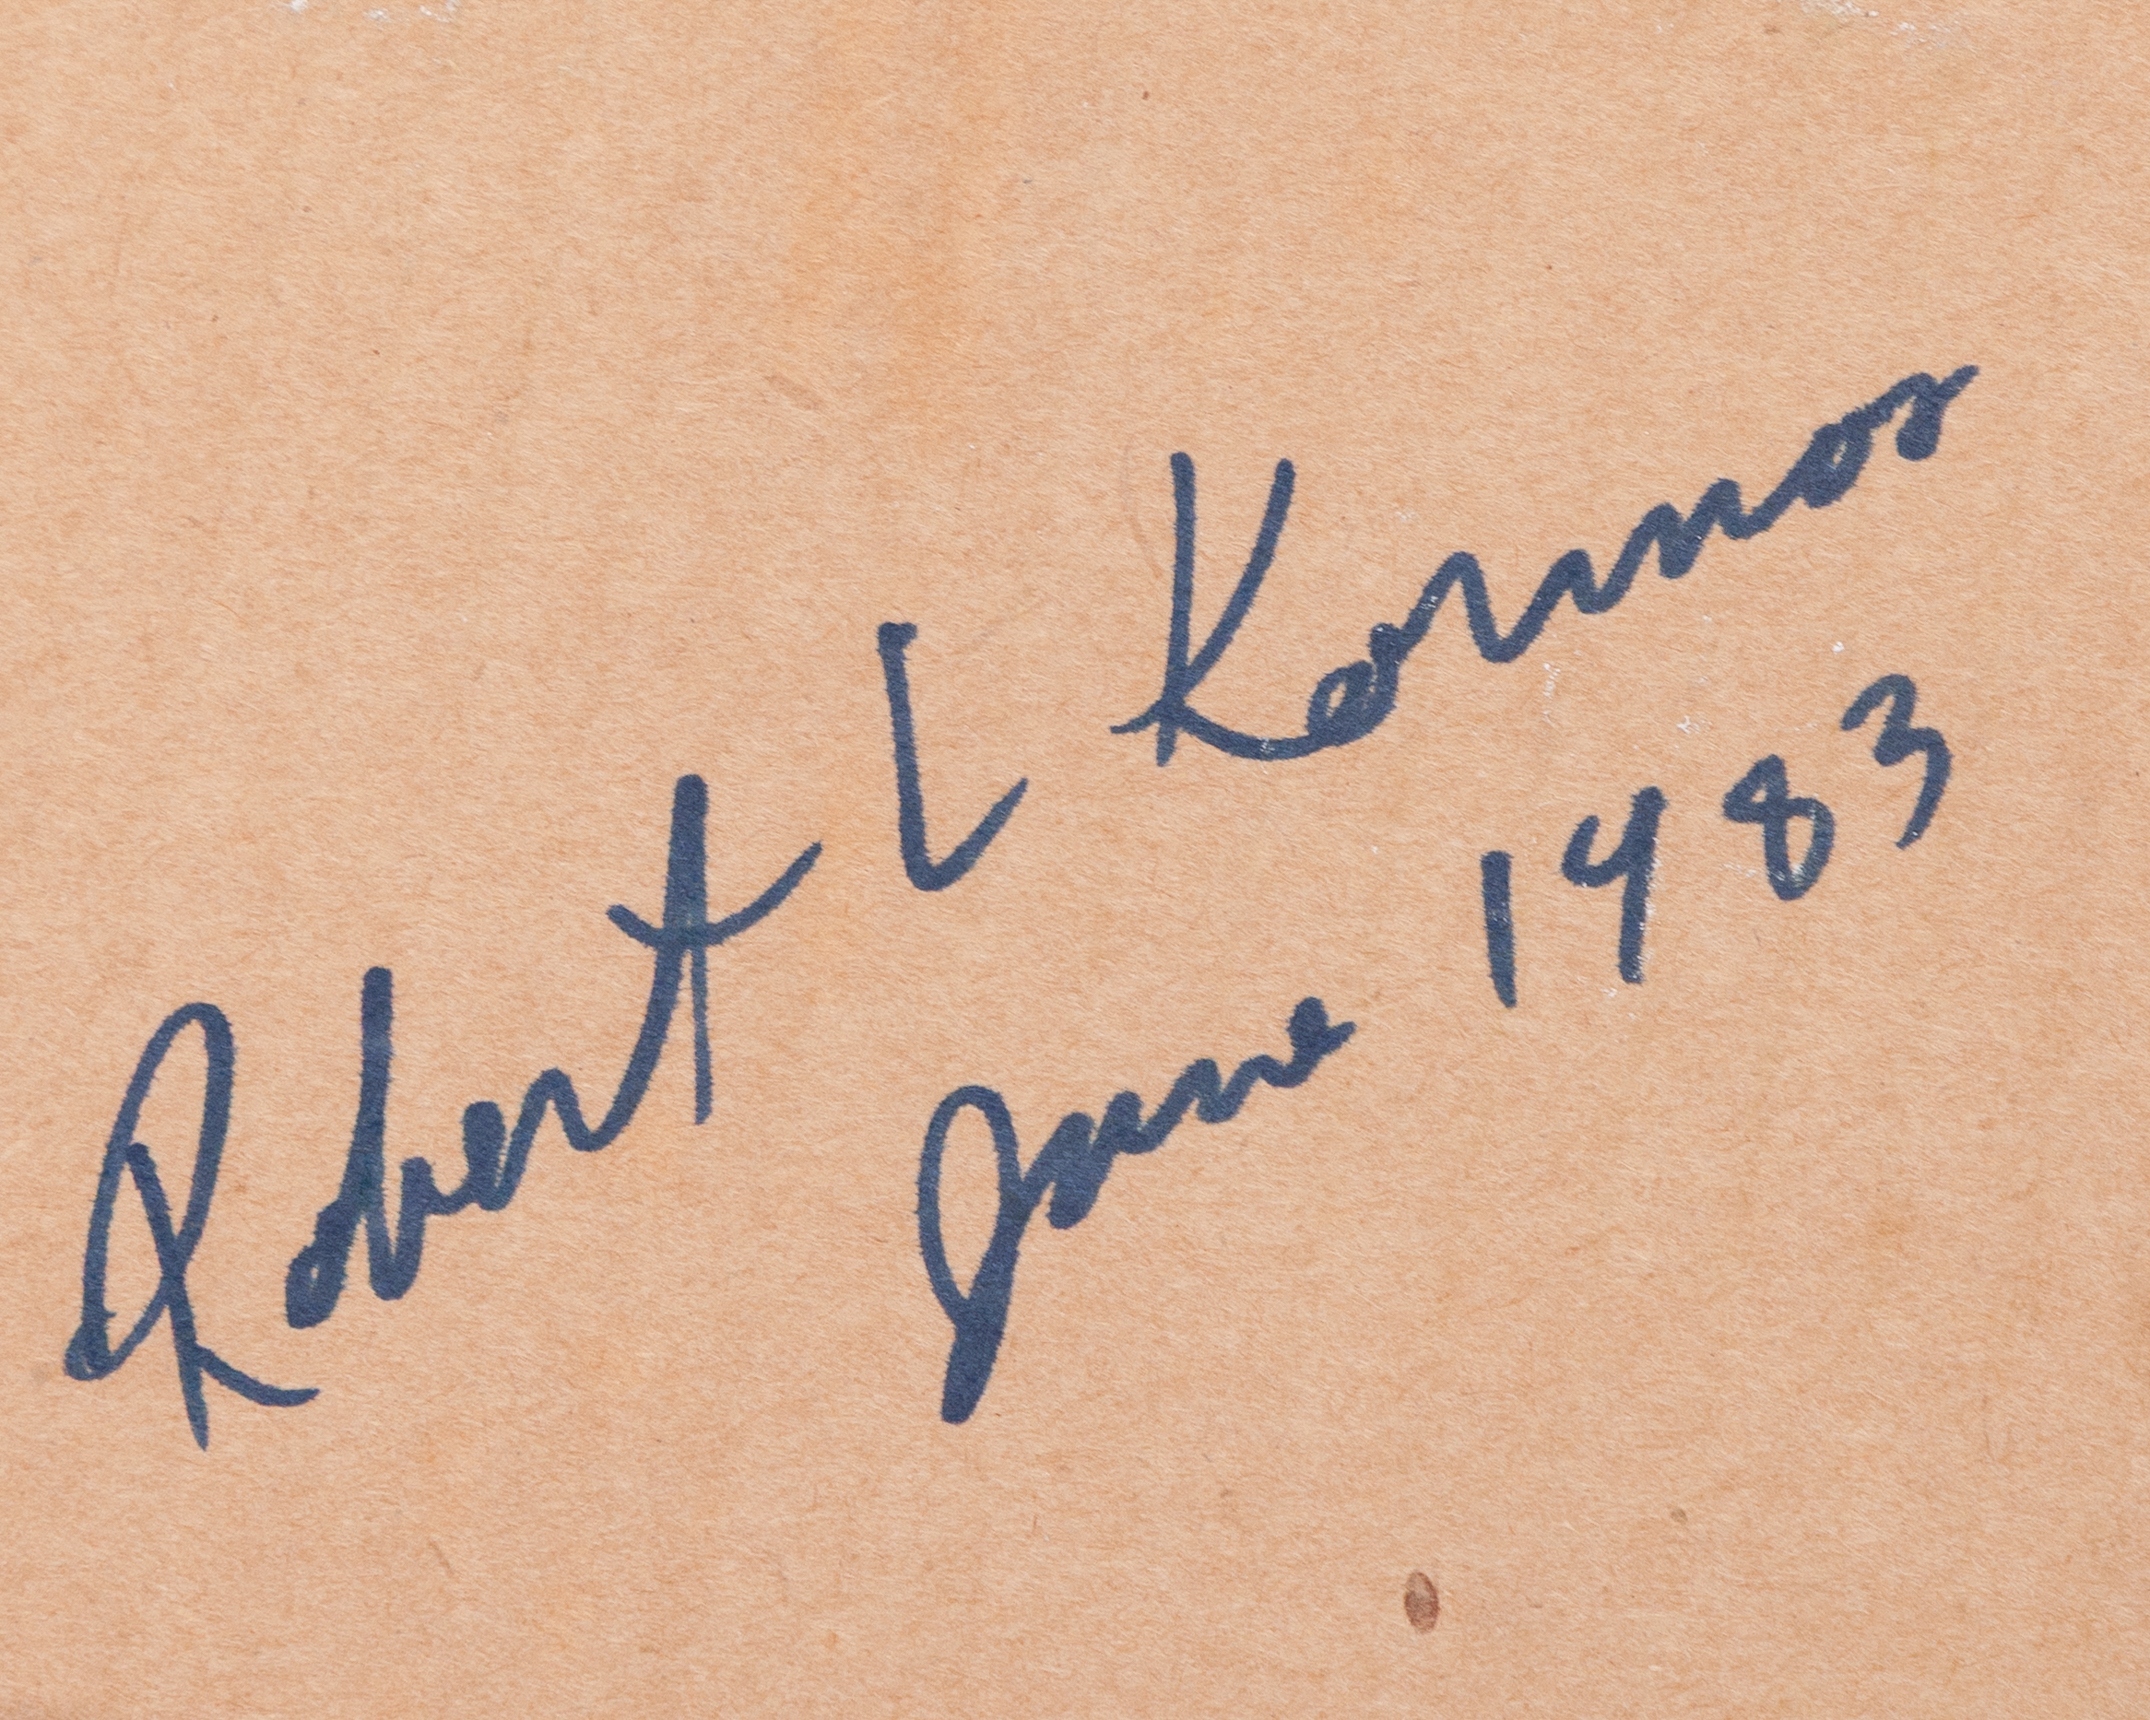 Robert L Kormos
June 1983